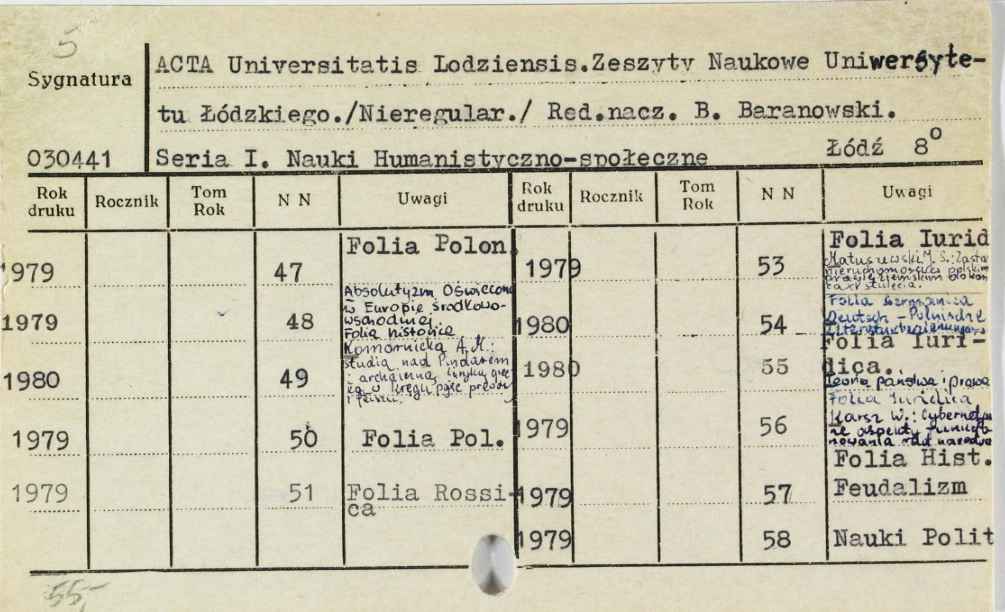 5
Sygnatura
030441
ACTA Universitatis Lodziensis.Zeszyty Naukowe Uniwersyte-
tu Łódzkiego./Nieregular./ Red.nacz. B. Baranowski.
Seria I. Nauki Humanistyczno-społeczne Łódź 8°
Rok druku Rocznik Tom Rok N N Uwagi
1979 47 Folia Polon.
1979 48 Absolutyzm Oświecone
w Europie środkowo-
wschodniej
Folia historica
1980 49 Komornicka A. M.:
studia nad Pindarem
i archaiczną liryką
w kręgu pojęć prawdy
i fałszu.
1979 50 Folia Pol.
1979 51 Folia Rossi-
ca
Rok druku Rocznik Tom Rok N N Uwagi
1979 53 Folia Iurid
Matuszewski J. S.: Zastaw
nieruchomości w polskim
prawie ziemskim do koń
ca XV stulecia.
1980 54 Folia Germanica
Deutsch - Polnische
1980 55 Folia Iuri-
dica.
Teoria państwa i prawa
1979 56 Folia Iuridica
W.: Cybernety
ne aspekty
nowania nad
1979 57 Folia Hist.
Feudalizm
1979 58 Nauki Polit
55,-